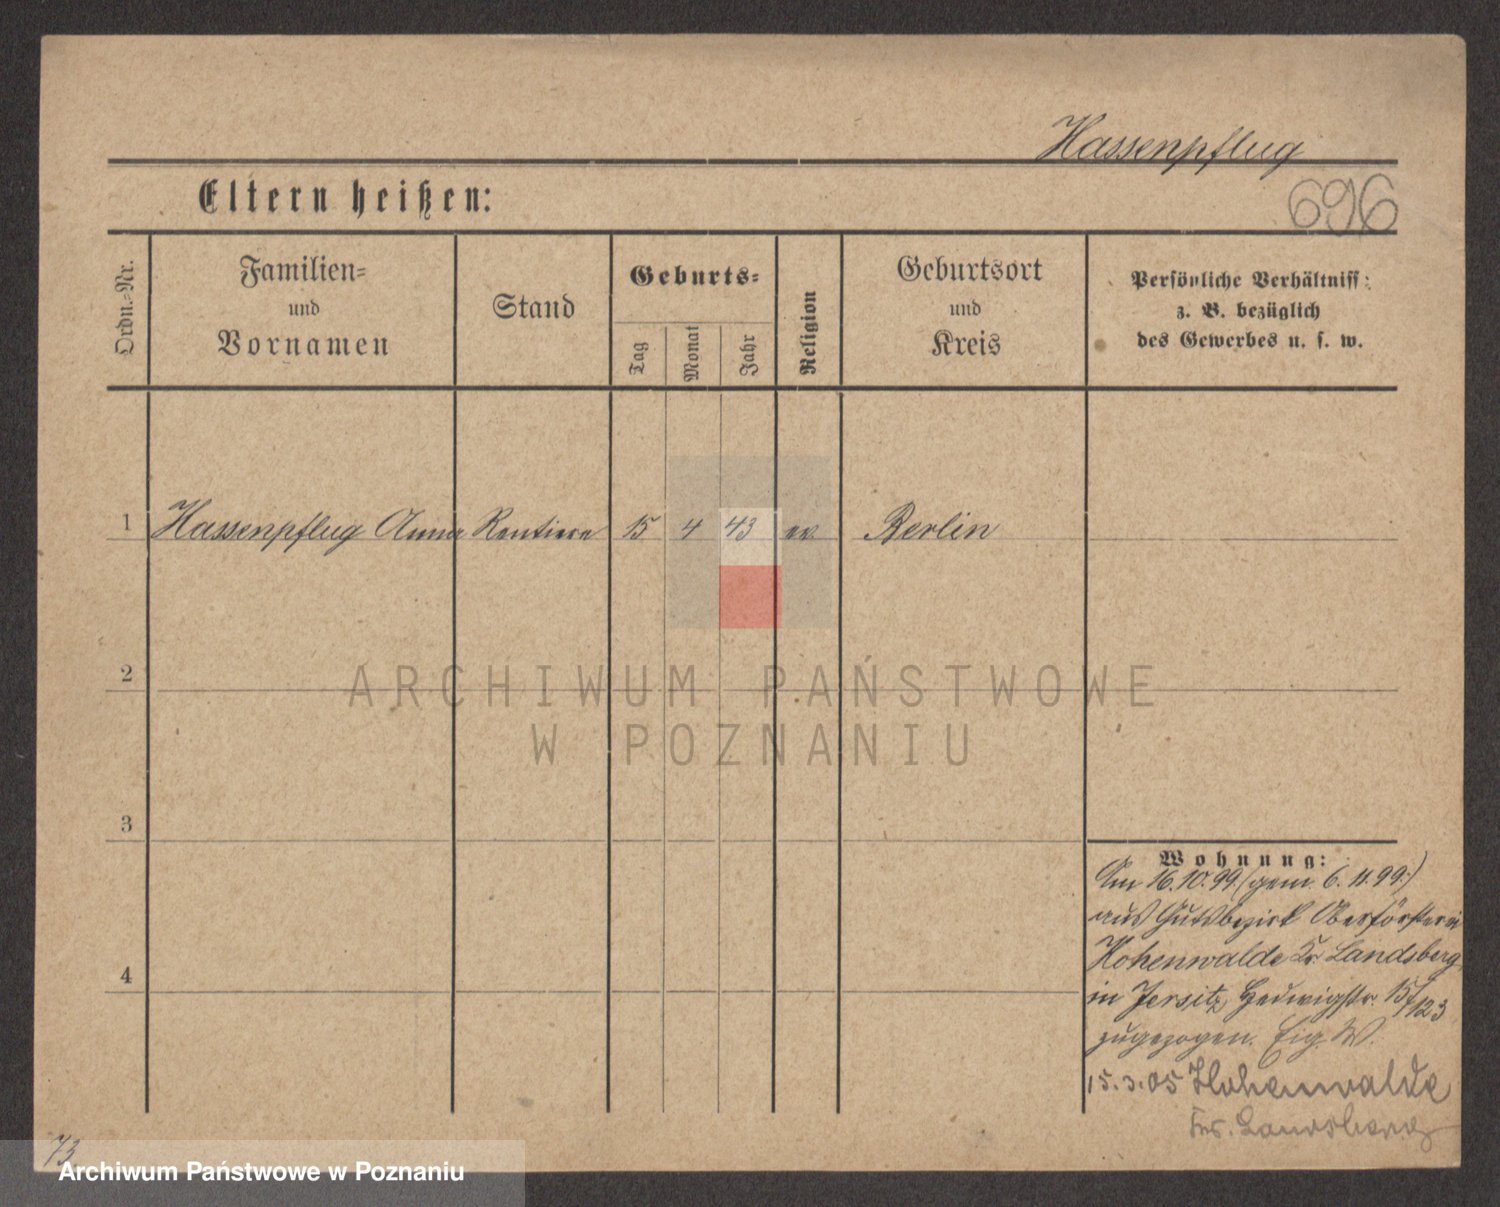 Hassenpflug
696
Eltern heißen:
Ordn.-Nr.
Familien-
und
Vornamen
Stand
Geburts-
Tag
Monat
Jahr
Religion
Geburtsort
und
Kreis
Persönliche Verhältniss
z. B. bezüglich
des Gewerbes u. s. w.
1 Hassenpflug Anna Rentiere 15 4 43 ev. Berlin
2
ARCHIWUM PAŃSTWOWE
W POZNANIU
3
4
Wohnung:
Am 16.10.99 (gem. 6.11.99.)
aus Gutsbezirk Oberförsterei
Hohenwalde Kr. Landsberg
in Jersitz, Hedwigstr. 15/123
zugezogen. Eig. W.
15.3.05 Hohenwalde
Krs. Landsberg
73
Archiwum Państwowe w Poznaniu